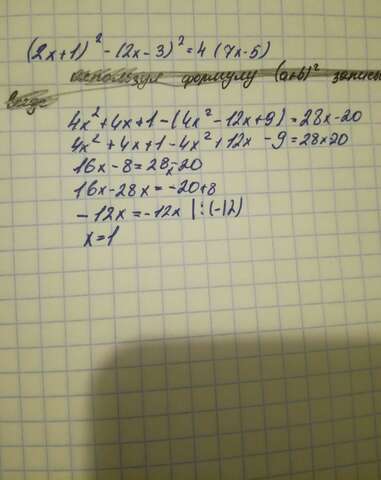 (2x+1)² - (2x-3)² = 4 (7x-5)
используя формулу (a+b)²
4x² + 4x + 1 - (4x² - 12x + 9) = 28x - 20
4x² + 4x + 1 - 4x² + 12x - 9 = 28x-20
16x - 8 = 28x-20
16x - 28x = -20+8
-12x = -12x |:(-12)
x = 1